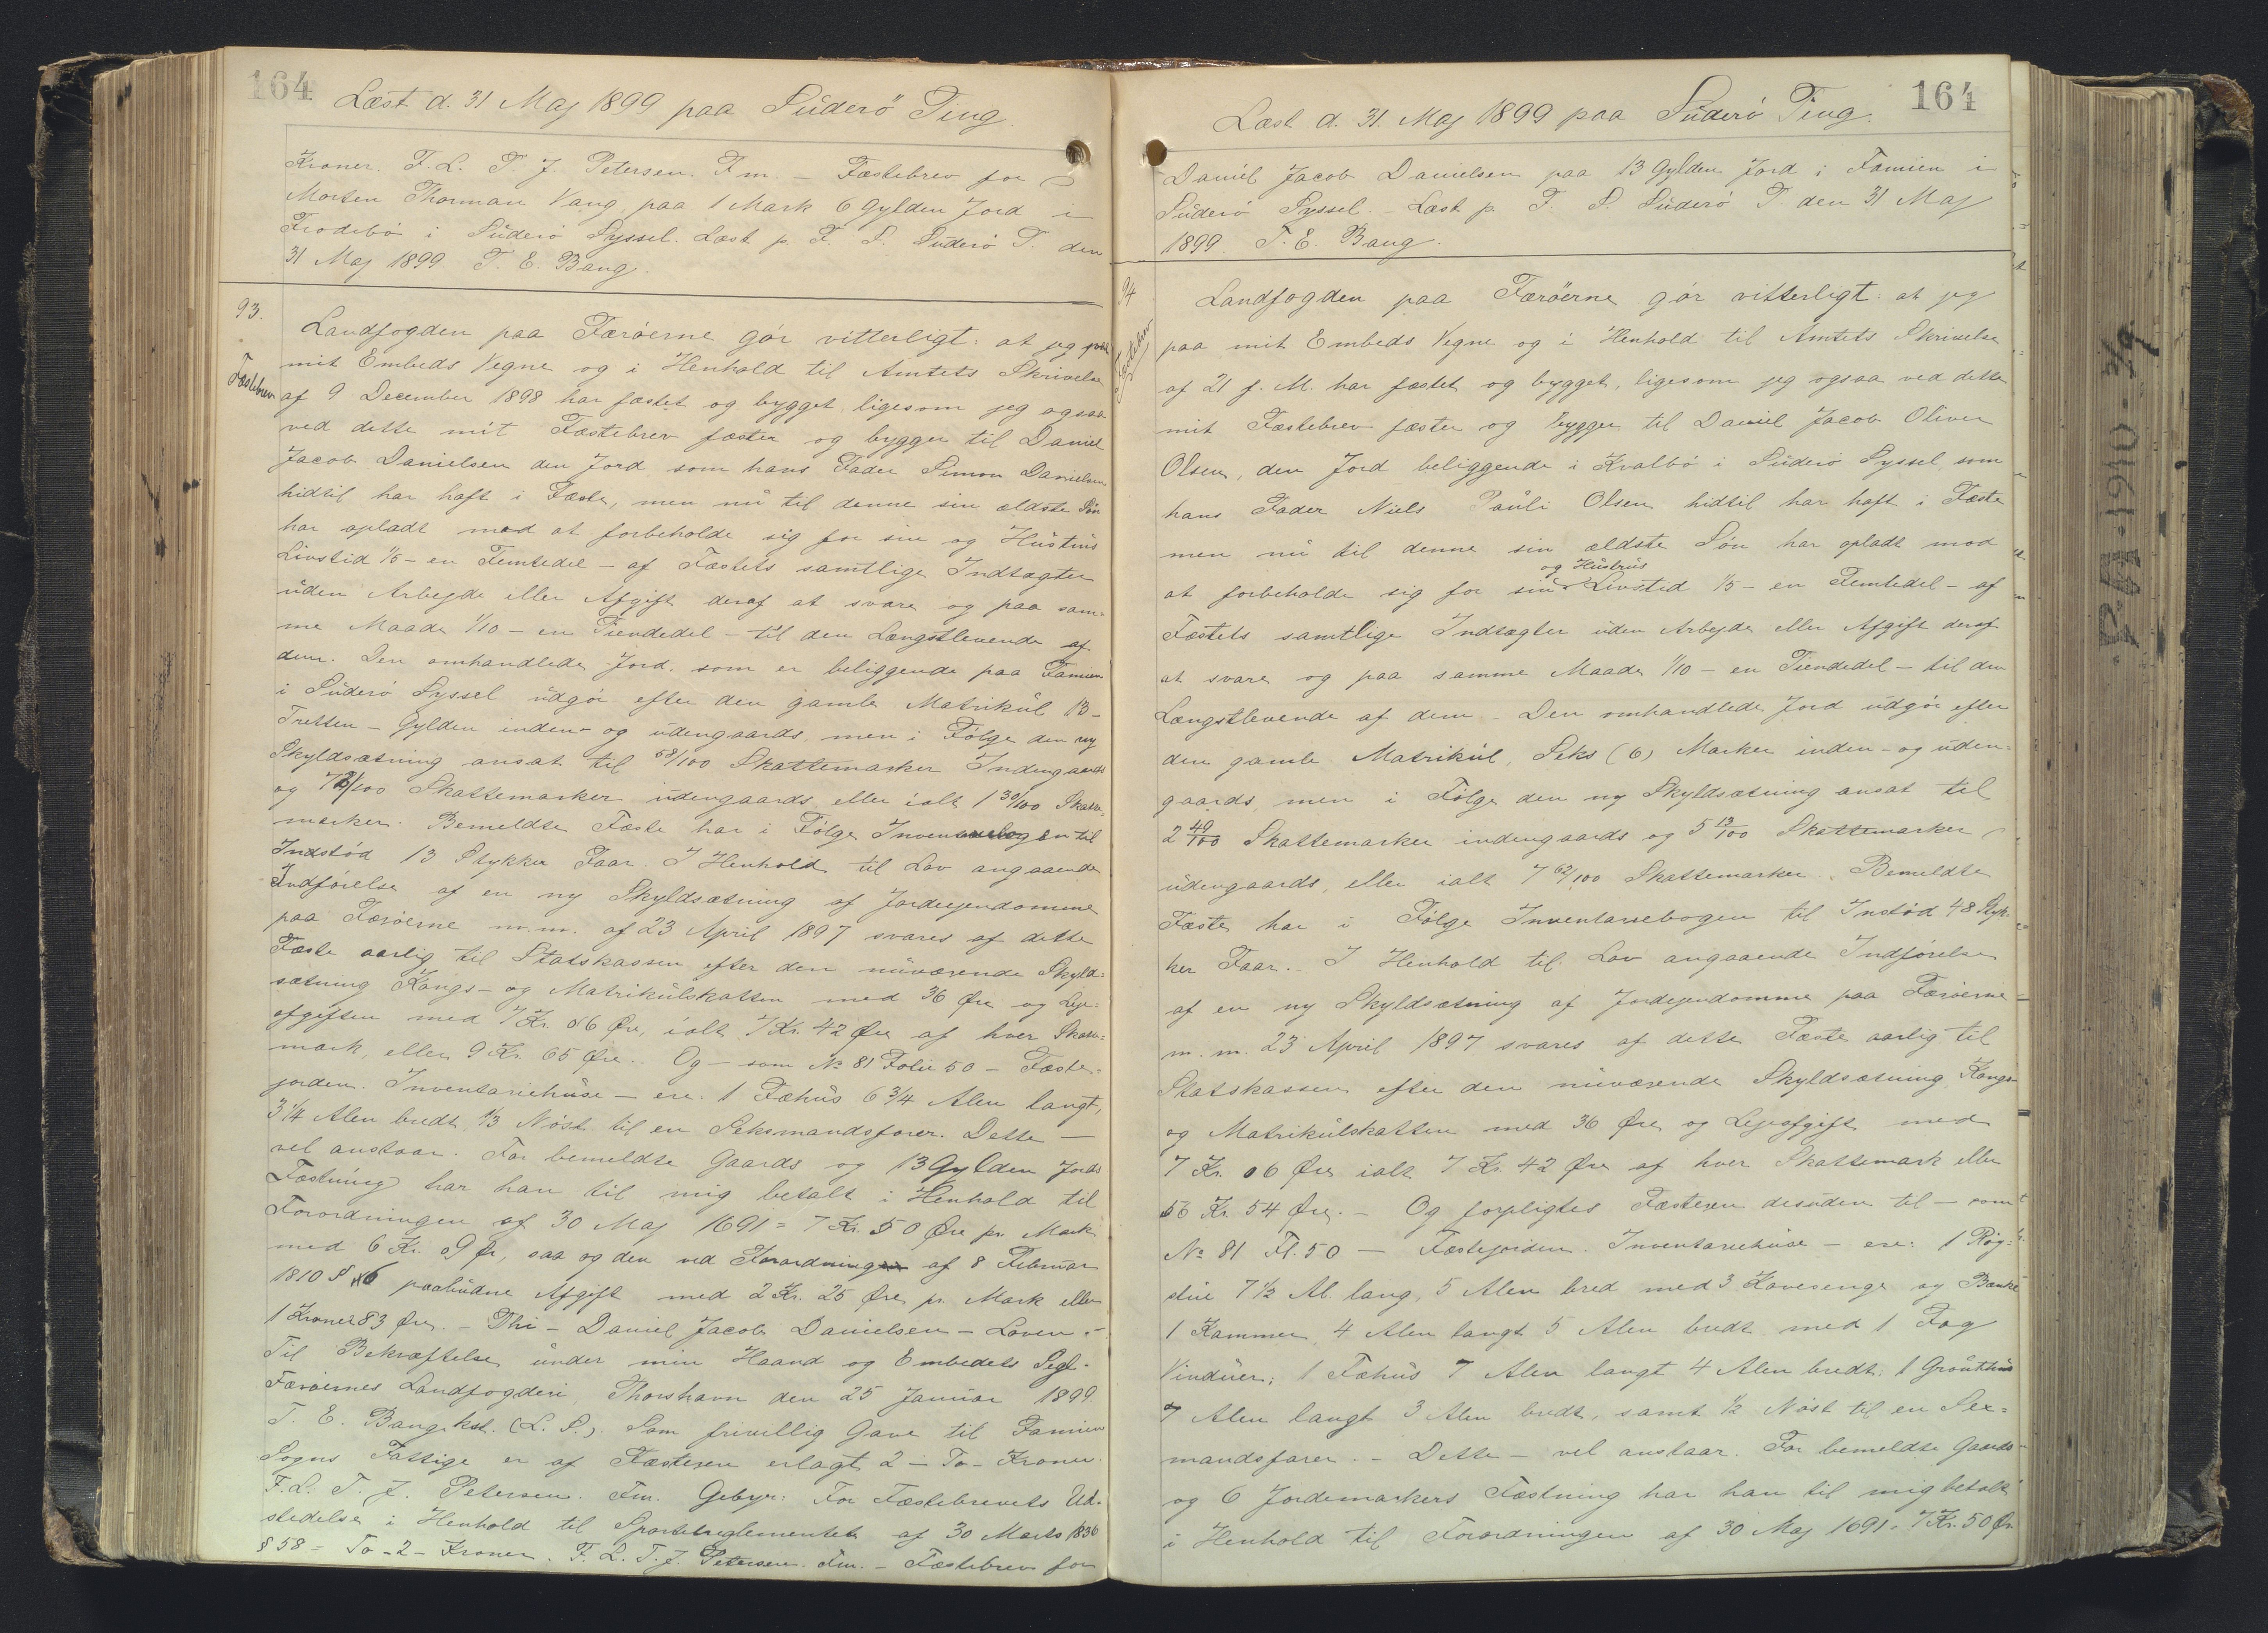 164
Læst d. 31 Maj 1899 paa Süderö Ting.
Kroner. F. L. T. J. Petersen. Fm. — Fæstebrev for
Morten Thorman Vang, paa 1 Mark 6 Gylden Jord i
Frodebö i Süderö Syssel. Læst p. F. S. Süderö T. den
31 Maj 1899. T. E. Bang.
93.
Fæstebrev
Landfogden paa Færöerne gör vitterligt: at jeg paa
mit Embeds Vegne og i Henhold til Amtets Skrivelse
af 9 December 1898 har fæstet og bygget, ligesom jeg ogsaa
ved dette mit Fæstebrev fæster og bygger til Daniel
Jacob Danielsen den Jord som hans Fader Simon Danielsen
hidtil har haft i Fæste, men nü til denne sin ældste Sön
har opladt mod at forbeholde sig for sin og Hüstrüs
Livstid 1/5 - en Femtedel - af Fæstets samtlige Indtægter
üden Arbejde eller Afgift deraf at svare og paa sam=
me Maade 1/10 - en Tiendedel - til den Længstlevende af
dem. Den omhandlede Jord, som er beliggende paa Famien
i Süderö Syssel üdgör efter den gamle Matrikül 13-
Tretten - Gylden inden- og üdengaards, men i Fölge den ny
Skyldsætning ansat til 58/100 Skattemarker Indengaards
og 72/100 Skattemarker üdengaards eller ialt 1 30/100 Skatte=
marker. Bemeldte Fæste har i Fölge Inventariebogen til
Indstöd 13 Stykker Faar. I Henhold til Lov angaaende
Indförelse af en ny Skyldsætning af Jordejendomme
paa Færöerne m.m. af 23 April 1897 svares af dette
Fæste aarlig til Statskassen efter den nüværende Skyld=
sætning Kongs- og Matrikülskatten med 36 Øre og Leje=
afgiften med 7 Kr. 06 Øre, ialt 7 Kr. 42 Øre af hver Skatte=
mark, eller 9 Kr. 65 Øre. Og - som No 81 Folie 50 - Fæste=
jorden. Inventariehüse - ere: 1 Fæhüs 6 3/4 Alen langt,
3 1/4 Alen bredt, 1/3 Nöst til en Seksmandsfarer. Dette —
vel anstaar. For bemeldte Gaards og 13 Gylden Jords
Fæstning har han til mig betalt i Henhold til
Forordningen af 30 Maj 1691 = 7 Kr. 50 Øre pr. Mark
med 6 Kr. 09 Ør, saa og den ved Forordningen af 8 Februar
1810 § 16 paabüdne Afgift med 2 Kr. 25 Øre pr. Mark eller
1 Kroner 83 Øre. - Thi - Daniel Jacob Danielsen - Loven. -
Til Bekræftelse ünder min Haand og Embedets Segl.
Færöernes Landfogderi, Thorshavn den 25 Januar 1899.
T. E. Bang. kst. (L. S.). Som frivillig Gave til Famien
Sogns Fattige er af Fæsteren erlagt 2 - To - Kroner.
F. L. T. J. Petersen. Fm. Gebyr: For Fæstebrevets Ud=
stedelse i Henhold til Sportelreglementet af 30 Marts 1836
§ 58 = To - 2 - Kroner. F. L. T. J. Petersen. Fm. - Fæstebrev for
164
Læst d. 31. Maj 1899 paa Süderö Ting.
Daniel Jacob Danielsen paa 13 Gylden Jord i Famien i
Süderö Syssel. - Læst p. F. S. Süderö T. den 31 Maj
1899. T. E. Bang.
94
Fæstebrev
Landfogden paa Færöerne gör vitterligt: at jeg
paa mit Embeds Vegne og i Henhold til Amtets Skrivelse
af 21 f. M. har fæstet og bygget, ligesom jeg ogsaa ved dette
mit Fæstebrev fæster og bygger til Daniel Jacob Oliver
Olsen, den Jord beliggende i Kvalbö i Süderö Syssel, som
hans Fader Niels Paüli Olsen hidtil har haft i Fæste
men nü til denne sin ældste Sön har opladt mod
og Hüstrüs
at forbeholde sig for sin Livstid 1/5 - en Femtedel - af
Fæstets samtlige Indtægter üden Arbejde eller Afgift deraf
at svare og paa samme Maade 1/10 - en Tiendedel - til den
Længstlevende af dem. Den omhandlede Jord üdgör efter
den gamle Matrikül, Seks (6) Marker inden- og üden=
gaards, men i Fölge den ny Skyldsætning ansat til
2 49/100 Skattemarker indengaards og 5 13/100 Skattemarker
üdengaards, eller ialt 7 62/100 Skattemarker. Bemeldte
Fæste har i Fölge Inventariebogen til Instöd 48 Styk=
ker Faar. - I Henhold til Lov angaaende Indförelse
af en ny Skyldsætning af Jordejendomme paa Færöerne
m. m. 23 April 1897 svares af dette Fæste aarlig til
Statskassen efter den nüværende Skyldsætning Kongs-
og Matrikülskatten med 36 Øre og Lejeafgift med
7 Kr. 06 Øre ialt 7 Kr. 42 Øre af hver Skattemark eller
56 Kr. 54 Øre. - Og forpligtes Fæsteren desüden til - som
No 81 Fl. 50 - Fæstejorden. Inventariehüse - ere: 1 Røg=
stüe 7 1/2 Al. lang, 5 Alen bred med 3 Kovesenge og Bænke
1 Kammer 4 Alen langt 5 Alen bredt med 1 Fag
Vindüer; 1 Fæhüs 7 Alen langt 4 Alen bredt; 1 Gröüthüs
7 Alen langt 3 Alen bredt, samt 1/2 Nöst til en Sex=
mandsfarer. - Dette - vel anstaar. For bemeldte Gaards
og 6 Jordemarkers Fæstning har han til mig betalt
i Henhold til Forordningen af 30 Maj 1691 = 7 Kr. 50 Ør